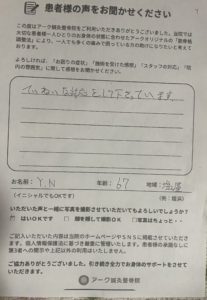 患者様の声をお聞かせください
この度はアーク鍼灸整骨院をご利用いただきありがとうございました。当院では
大切な患者様一人ひとりのお身体の状態に合わせたアークオリジナルの「
調整法」により、一人でも多くの痛みで困っている方の助けになりたいと考えて
おります。
よろしければ、「お困りの症状」「施術を受けた感想」「スタッフの対応」「院
内の雰囲気」に関して感想をお聞かせください。
ていねいな対応をして下さっています。
お名前：Y.N 年齢：67 地域：塩屋
（イニシャルでもOKです） （例：塩浜）
いただいた声と一緒に写真を撮影させていただいてもよろしいでしょうか？
はいOKです 顔を隠して撮影OK 写真はちょっと…
ご記入いただいた内容は当院のホームページやSNSに掲載させていただき
ます。個人情報保護法に基づき厳重に管理いたします。患者様の承諾なしに
第3者への開示や上記以外の利用はいたしません。
ご協力ありがとうございました。引き続き全力でお身体のサポートをさせて
いただきます。
アーク鍼灸整骨院